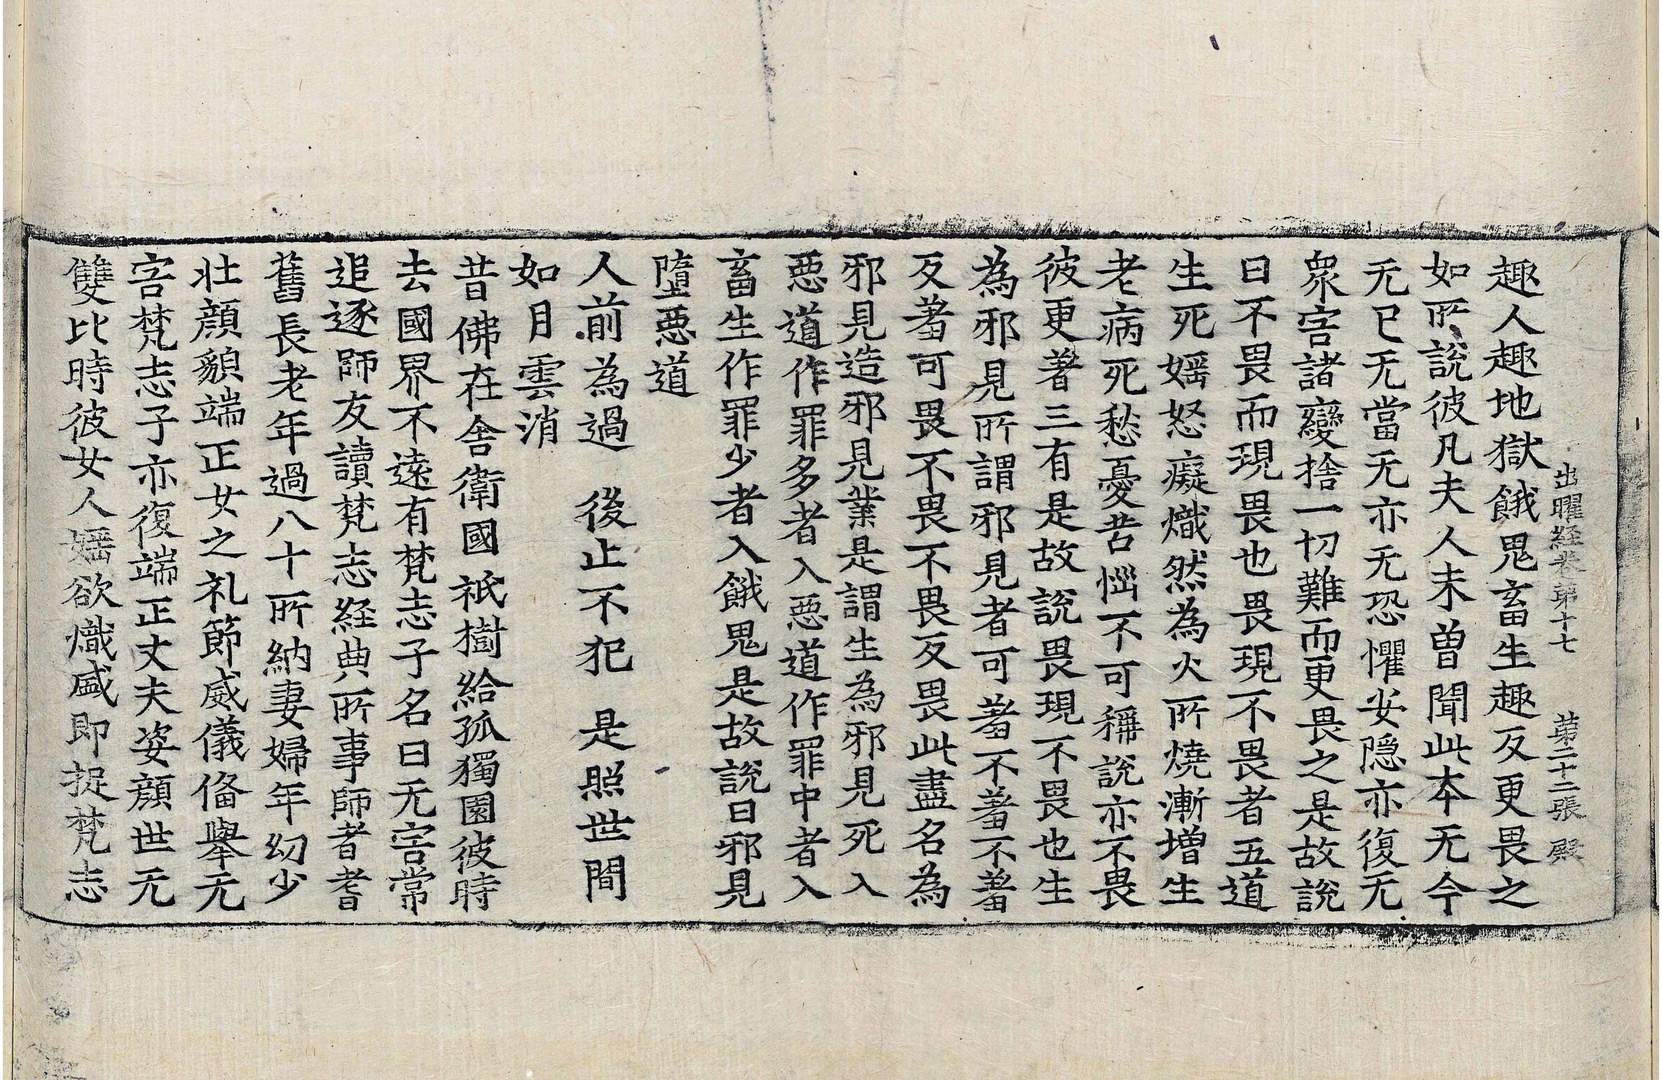 出曜経卷第十七　第二十二張　殿
趣人趣地獄餓鬼畜生趣反更畏之
如所說彼凡夫人未曾聞此本无今
无已无當无亦无恐懼安隠亦復无
衆害諸變捨一切難而更畏之是故說
曰不畏而現畏也畏現不畏者五道
生死婬怒癡熾然為火所燒漸增生
老病死愁憂苦惱不可稱說亦不畏
彼更著三有是故說畏現不畏也生
為邪見所謂邪見者可著不著不著
反著可畏不畏不畏反畏此盡名為
邪見造邪見業是謂生為邪見死入
惡道作罪多者入惡道作罪中者入
畜生作罪少者入餓鬼是故說曰邪見
墮惡道
人前為過　後止不犯　是照世間
如月雲消
昔佛在舍衛國祇樹給孤獨園彼時
去國界不遠有梵志子名曰无害常
追逐師友讀梵志経典所事師者耆
舊長老年過八十所納妻婦年幼少
壮顔貌端正女之礼節威儀俻舉无
害梵志子亦復端正丈夫姿顔世无
雙比時彼女人婬欲熾盛即捉梵志